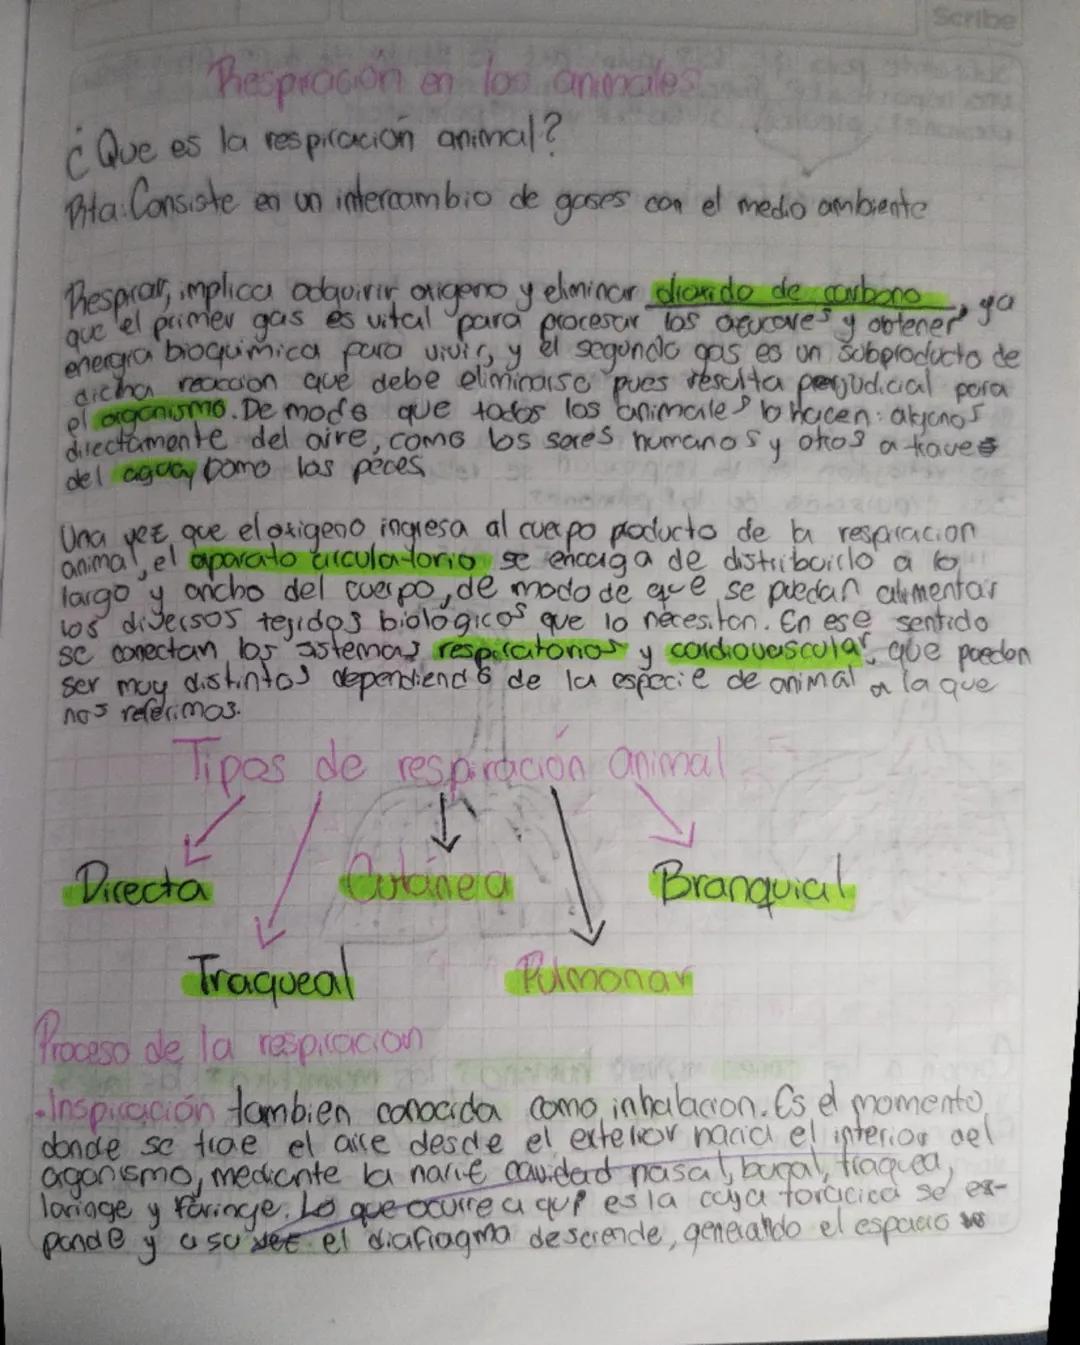 Scribe
Respiración en los animales
¿Que es la respiración animal?
Rta: Consiste en un intercambio de gases con el medio ambiente
Respirar, implica adquirir oxigeno y eliminar dioxido de carbono, ya
que el primer gas es vital para procesar los azucares y obtener
energia bioquimica para vivir, y el segundo gas es un subproducto de
dicha reaccion que debe eliminarse pues resulta perjudicial para
el organismo. De modo que todos los animales lo hacen: algunos
directamente del aire, como los seres humanos y otros a traves
del agua, como los peces
Una vez que el oxigeno ingresa al cuerpo producto de la respiracion
animal, el aparato circulatorio se encarga de distribuirlo a lo
largo y ancho del cuerpo, de modo de que se puedan alimentar
los diversos tejidos biologicos que lo necesiton. En ese sentido
se conectan los sistemas respiratorios y cardiovascular, que pueden
ser muy distintos dependiendo de la especie de animal a la que
nos referimos.
Tipos de respiración animal
Directa Cutánea Branquial
Traqueal Pulmonar
Proceso de la respiracion
•Inspiración tambien conocida como inhalacion. Es el momento
donde se trae el aire desde el exterior hacia el interior del
organismo, mediante la nariz cavidad nasal, bucal, traquea,
laringe y faringe. Lo que ocurre aqui es la caja toracica se ex-
pande y a su vez el diafragma desciende, generando el espacio